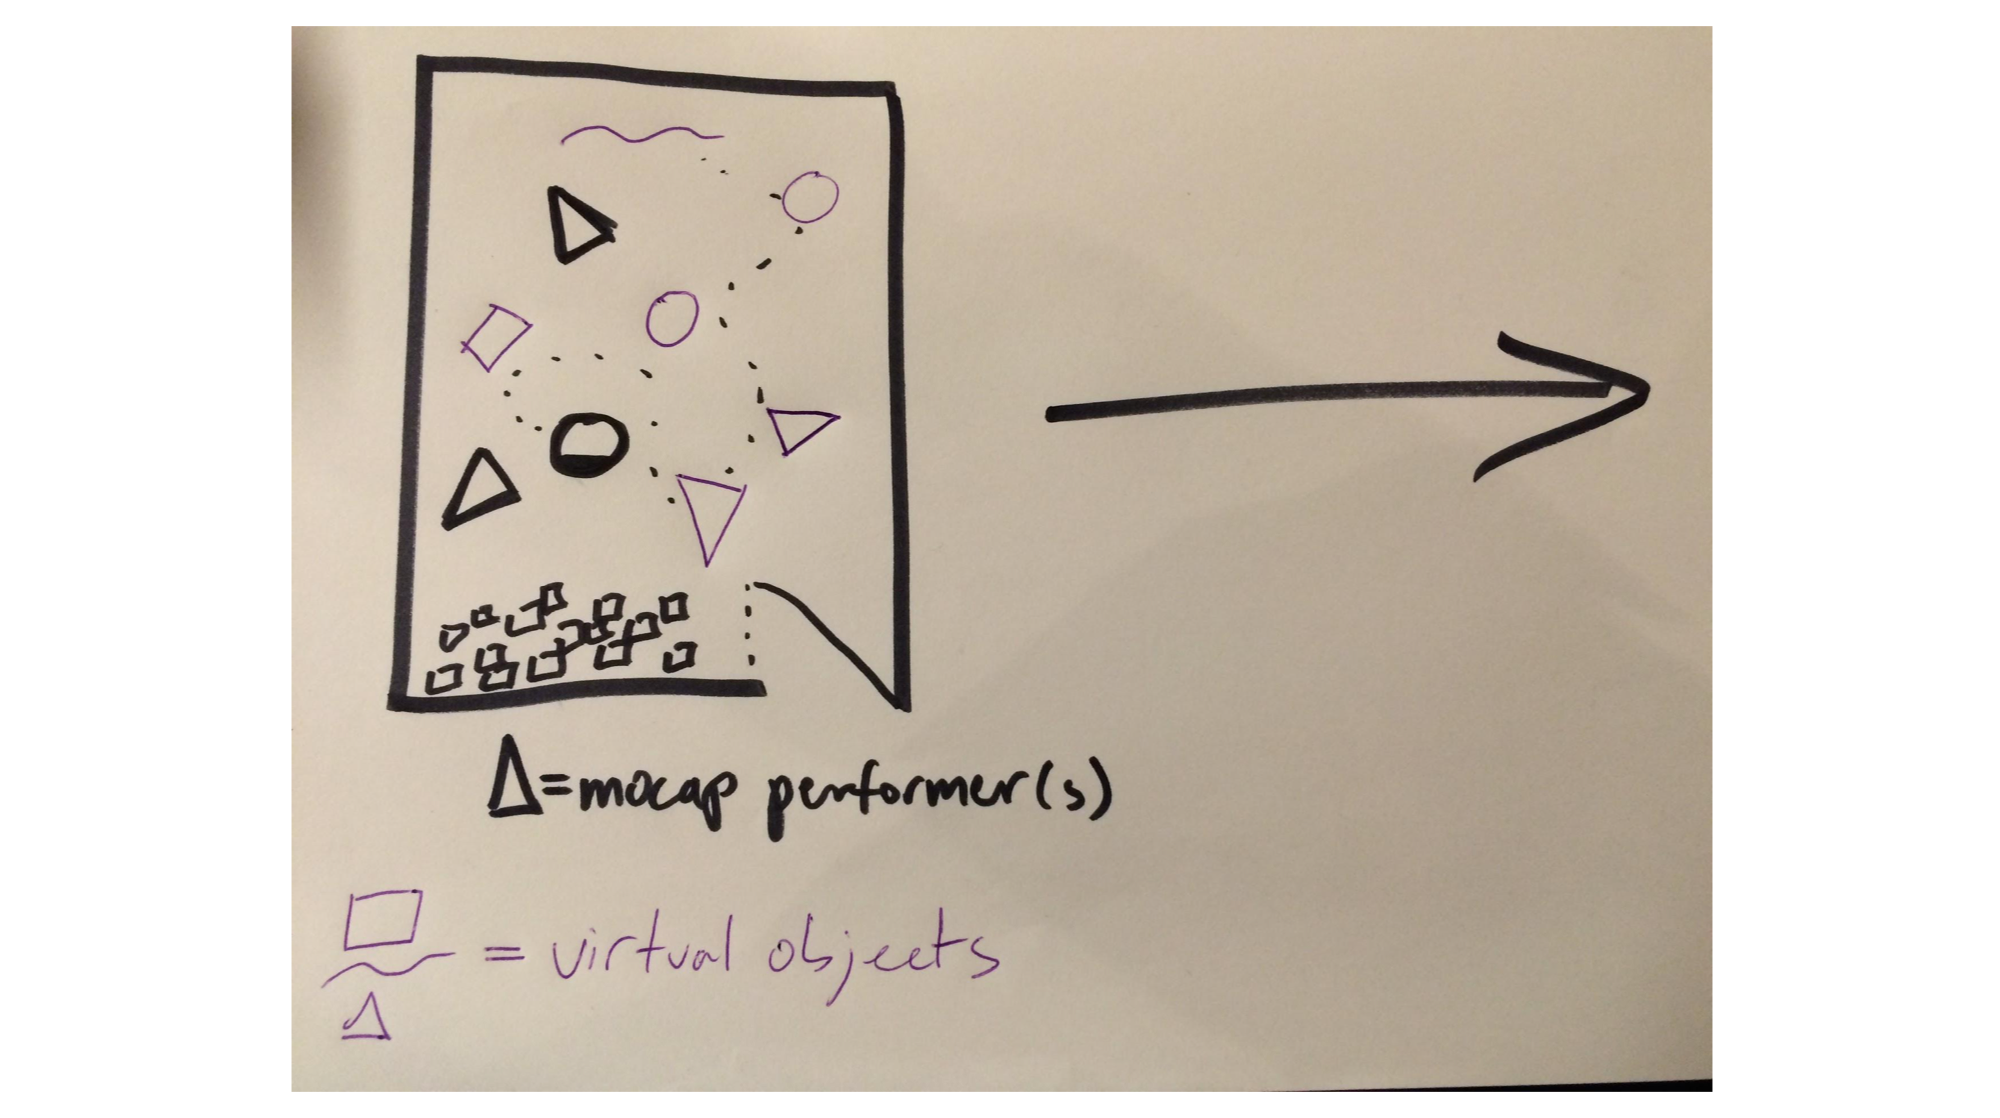 Δ=mocap performer(s)
= virtual objects